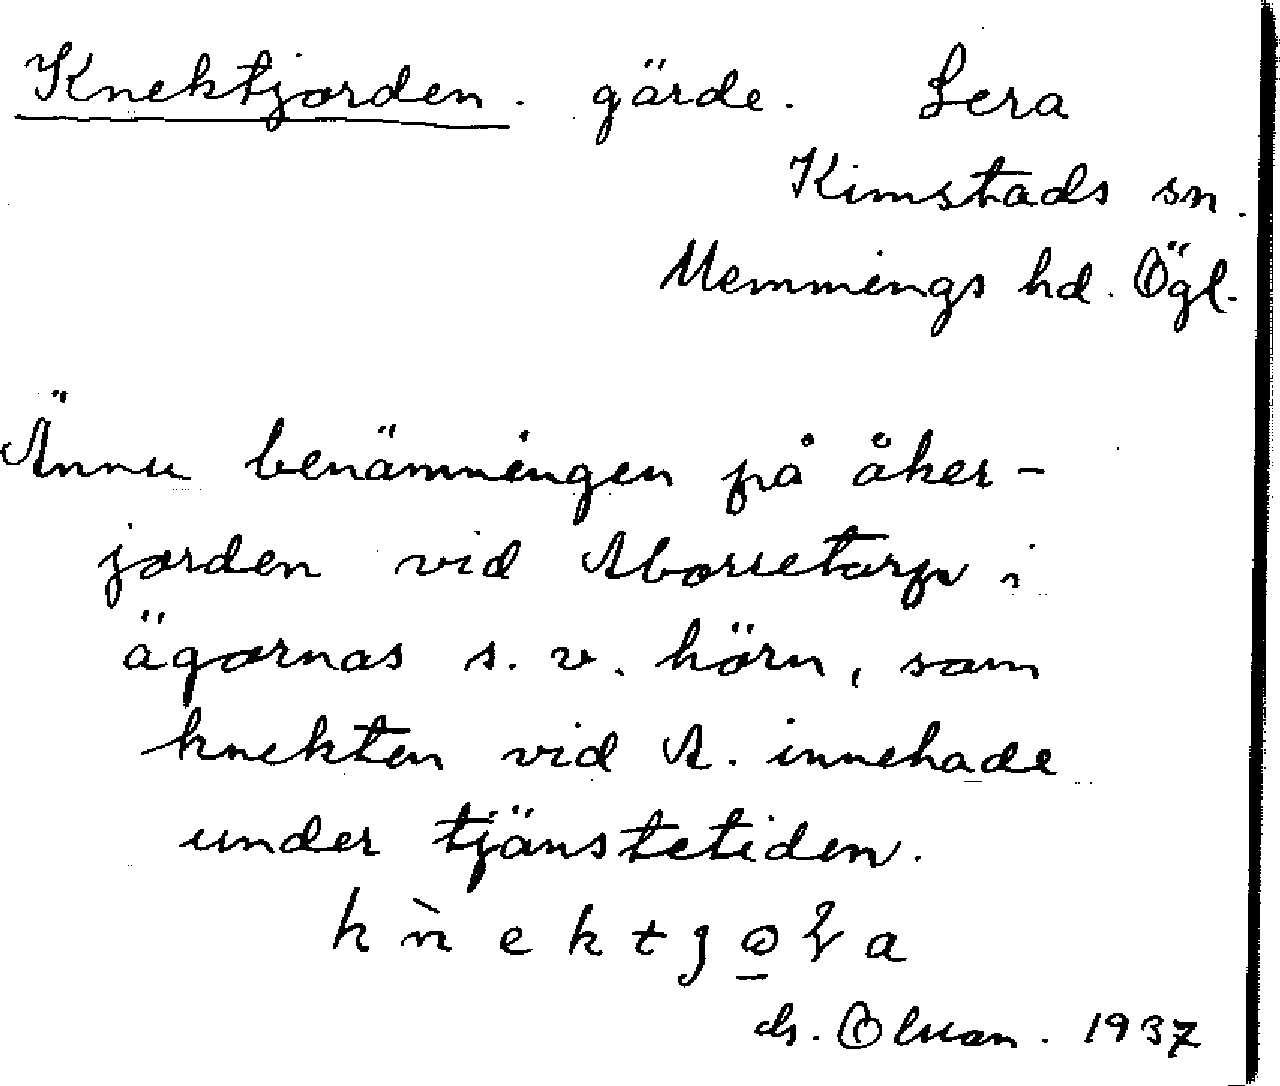 Knektjorden. gärde. Lera
Kimstads sn.
Memmings hd. Ögl.
Ännu benämningen på åker-
jorden vid Aborretorp i
ägornas s. v. hörn, som
knekten vid A. innehade
under tjänstetiden.
Olsson. 1937